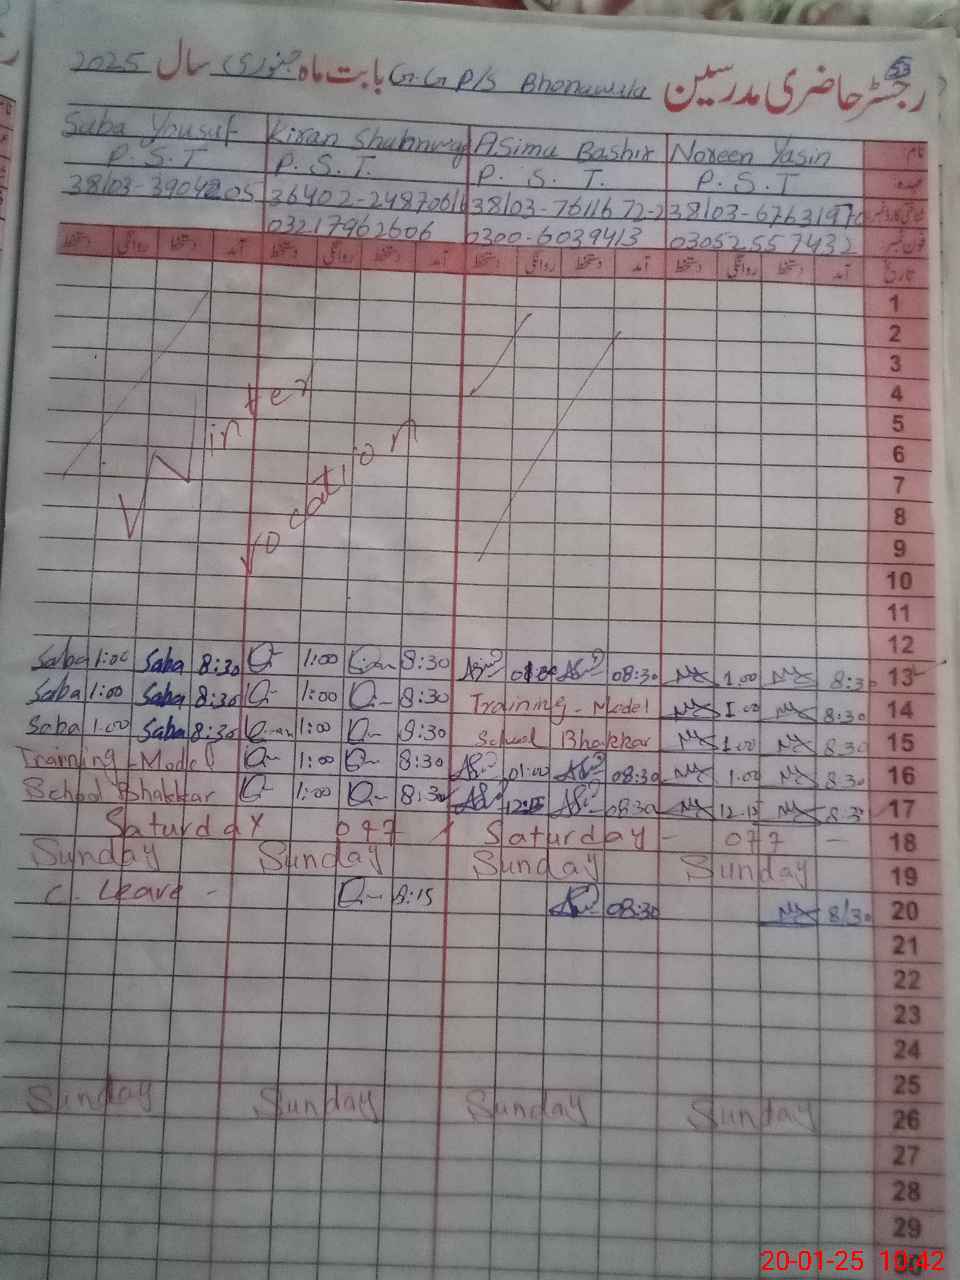 53
رجسٹر حاضری مدرسین G.G P/S Bhonawala بابت ماہ جنوری سال 2025
نام Noreen Yasin Asima Bashir Kiran Shahnwaz Saba Yousuf
عہدہ P.S.T P.S.T. P.S.T. P.S.T
38103-7611672-2 38103-3904205
فون نمبر 03052557432 0300-6039413 03217962606
تاریخ آمد دستخط روانگی دستخط آمد دستخط روانگی دستخط آمد دستخط روانگی دستخط آمد دستخط روانگی دستخط
1
2
3
4
5
6
7
8
9
10
11
12
Winter
Vocation
Saba 1:00 Saba 8:30 1:00 Kiran 8:30 01:00 08:30 1.00 8:30 13
Saba 1:00 Saba 8:30 1:00 8:30 Training - Model 1.00 8:30 14
Saba 1.00 Saba 8:30 Kiran 1:00 8:30 School Bhakkar 1.00 8:30 15
Training - Model 1:00 8:30 01:00 08:30 1.00 8:30 16
School Bhakkar 1:00 8:30 12:15 08:30 12.15 8:30 17
Saturday off Saturday - off - 18
Sunday Sunday Sunday Sunday 19
C. Leave - 8:15 08:30 8/30 20
21
22
23
24
25
Sunday Sunday Sunday Sunday 26
27
28
29
30
20-01-25 10:42